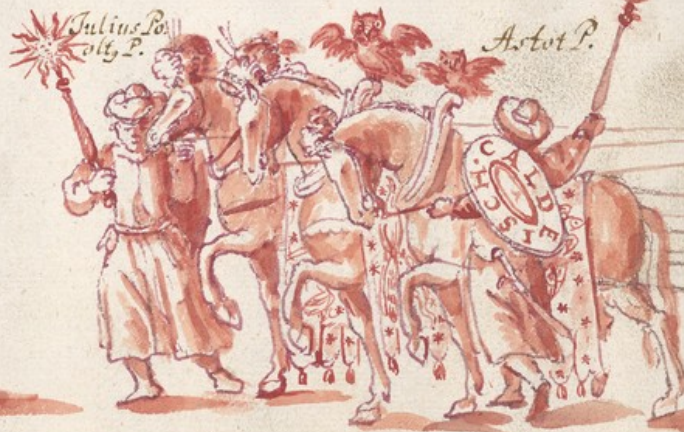 Julius Po:
oltz P.
Astot P.
CALDEISCH.